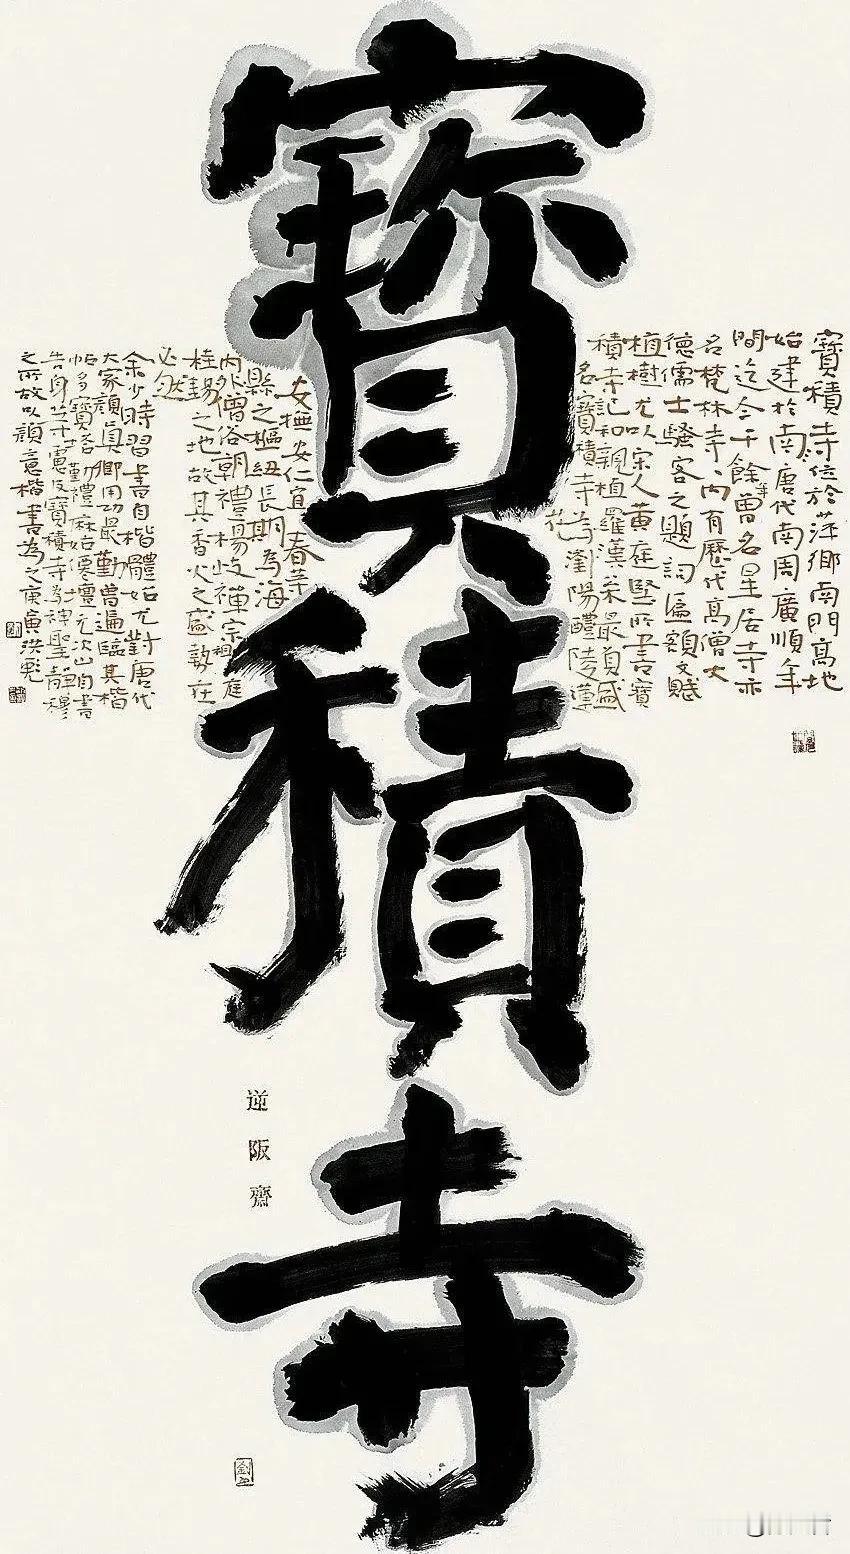 寶積寺
寶積寺位於萍鄉南門高地
始建於南唐代南周廣順年
間迄今千餘年曾名星居寺亦
名梵林寺寺內有歷代高僧大
德儒士騷客之題詞匾額文賦
植樹尤以宋人黃庭堅所書寶
積寺記和親植羅漢菜最負盛
名寶積寺為瀏陽醴陵
安仁宜春等
縣之樞紐長期為海
內外僧俗朝禮楊岐禪宗祖庭
桂錫之地故其香火之盛勢在
必然
余少時習書自楷體始尤對唐代
大家顏真卿用功最勤曾遍臨其楷
帖多寶塔勤禮麻姑仙壇元次山自書
告身等憲及寶積寺為禪聖靜穆
之所故以顏意楷書為之庚寅洪彪
逆阪齋